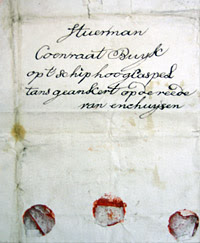 Stuerman
Coenraat Buyk
opt schip hooglasped
tans geankert op de reede
van enchuijsen